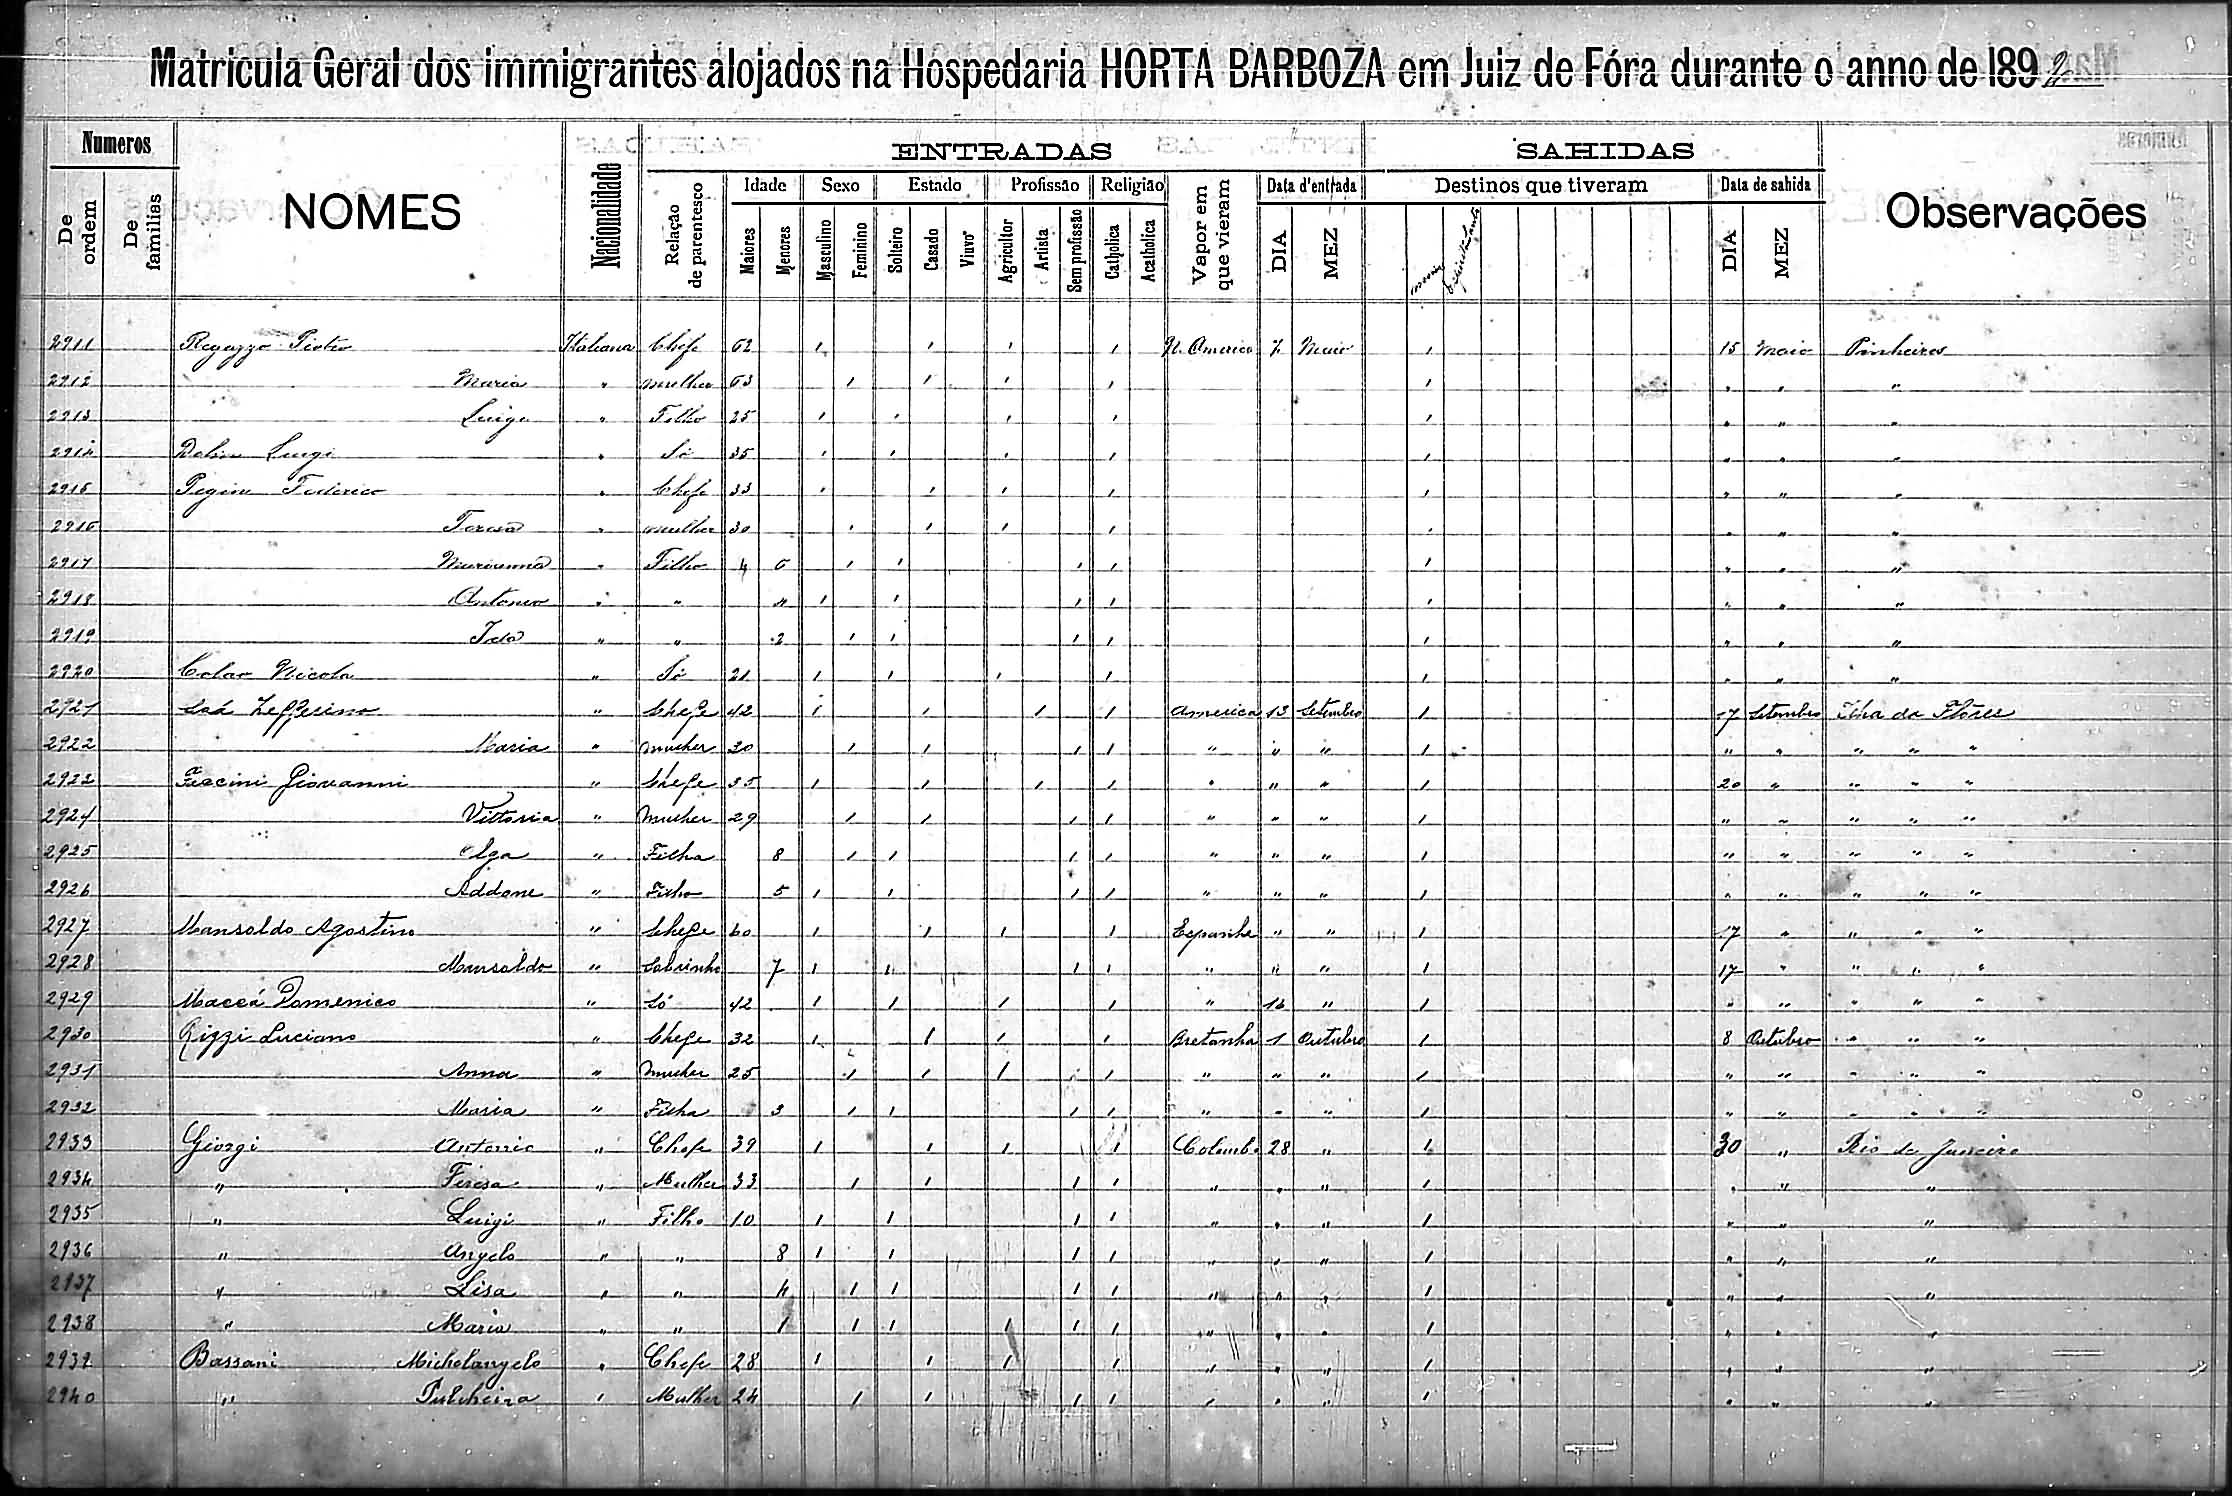 Matricula Geral dos immigrantes alojados na Hospedaria HORTA BARBOZA em Juiz de Fóra durante o anno de 1892
Numeros NOMES Nacionalidade ENTRADAS SAHIDAS Observações
De ordem De familias Relação de parentesco Idade Sexo Estado Profissão Religião Vapor em que vieram Data d'entrada Destinos que tiveram Data de sahida
Maiores Menores Masculino Feminino Solteiro Casado Viuvo Agricultor Artista Sem profissão Catholica Acatholica DIA MEZ DIA MEZ
2911 Regazzo Pietro Italiana Chefe 62 1 1 1 1 N. America 7 Maio 1 15 Maio Pinheiros
2912 Maria " mulher 63 1 1 1 1 1 " " "
2913 Luigi " Filho 25 1 1 1 1 1 " " "
2914 Luigi " Só 35 1 1 1 1 1 " " "
2915 Federico " Chefe 33 1 1 1 1 1 " " "
2916 Teresa " mulher 30 1 1 1 1 1 " " "
2917 " Filho 4 6 1 1 1 1 1 " " "
2918 Antonio " " " 1 1 1 1 1 " " "
2919 Ida " " 2 1 1 1 1 1 " " "
2920 Colao Nicola " Só 21 1 1 1 1 1 " " "
2921 Zefferino " Chefe 42 1 1 1 1 America 13 Setembro 1 17 Setembro Ilha da Flôres
2922 Maria " mulher 30 1 1 1 1 " " " 1 " " " " "
2922 Faccini Giovanni " Chefe 35 1 1 1 1 " " " 1 20 " " " "
2924 Vittoria " Mulher 29 1 1 1 1 " " " 1 " " " " "
2925 Olga " Filha 8 1 1 1 1 " " " 1 " " " " "
2926 Addone " Filho 5 1 1 1 1 " " " 1 " " " " "
2927 Mansoldo Agostino " Chefe 60 1 1 1 1 Espanha " " 1 17 " " " "
2928 Mansoldo " Sobrinho 7 1 1 1 1 " " " 1 17 " " " "
2929 Maccá Domenico " Só 42 1 1 1 1 " 16 " 1 " " " " "
2930 Rizzi Luciano " Chefe 32 1 1 1 1 Bretanha 1 Outubro 1 8 Outubro " " "
2931 Anna " Mulher 25 1 1 1 1 " " " 1 " " " " "
2932 Maria " Filha 3 1 1 1 1 " " " 1 " " " " "
2933 Giorgi Antonio " Chefe 39 1 1 1 1 Colombo 28 " 1 30 " Rio de Janeiro
2934 " Teresa " Mulher 33 1 1 1 1 " " " 1 " " "
2935 " Luigi " Filho 10 1 1 1 1 " " " 1 " " "
2936 " Angelo " " 8 1 1 1 1 " " " 1 " " "
2937 " Lisa " " 4 1 1 1 1 " " " 1 " " "
2938 " Maria " " 1 1 1 1 1 1 " " " 1 " " "
2939 Bassani Michelangelo " Chefe 28 1 1 1 1 " " " 1 " " "
2940 " Pulcheira " Mulher 24 1 1 1 1 " " " 1 " " "